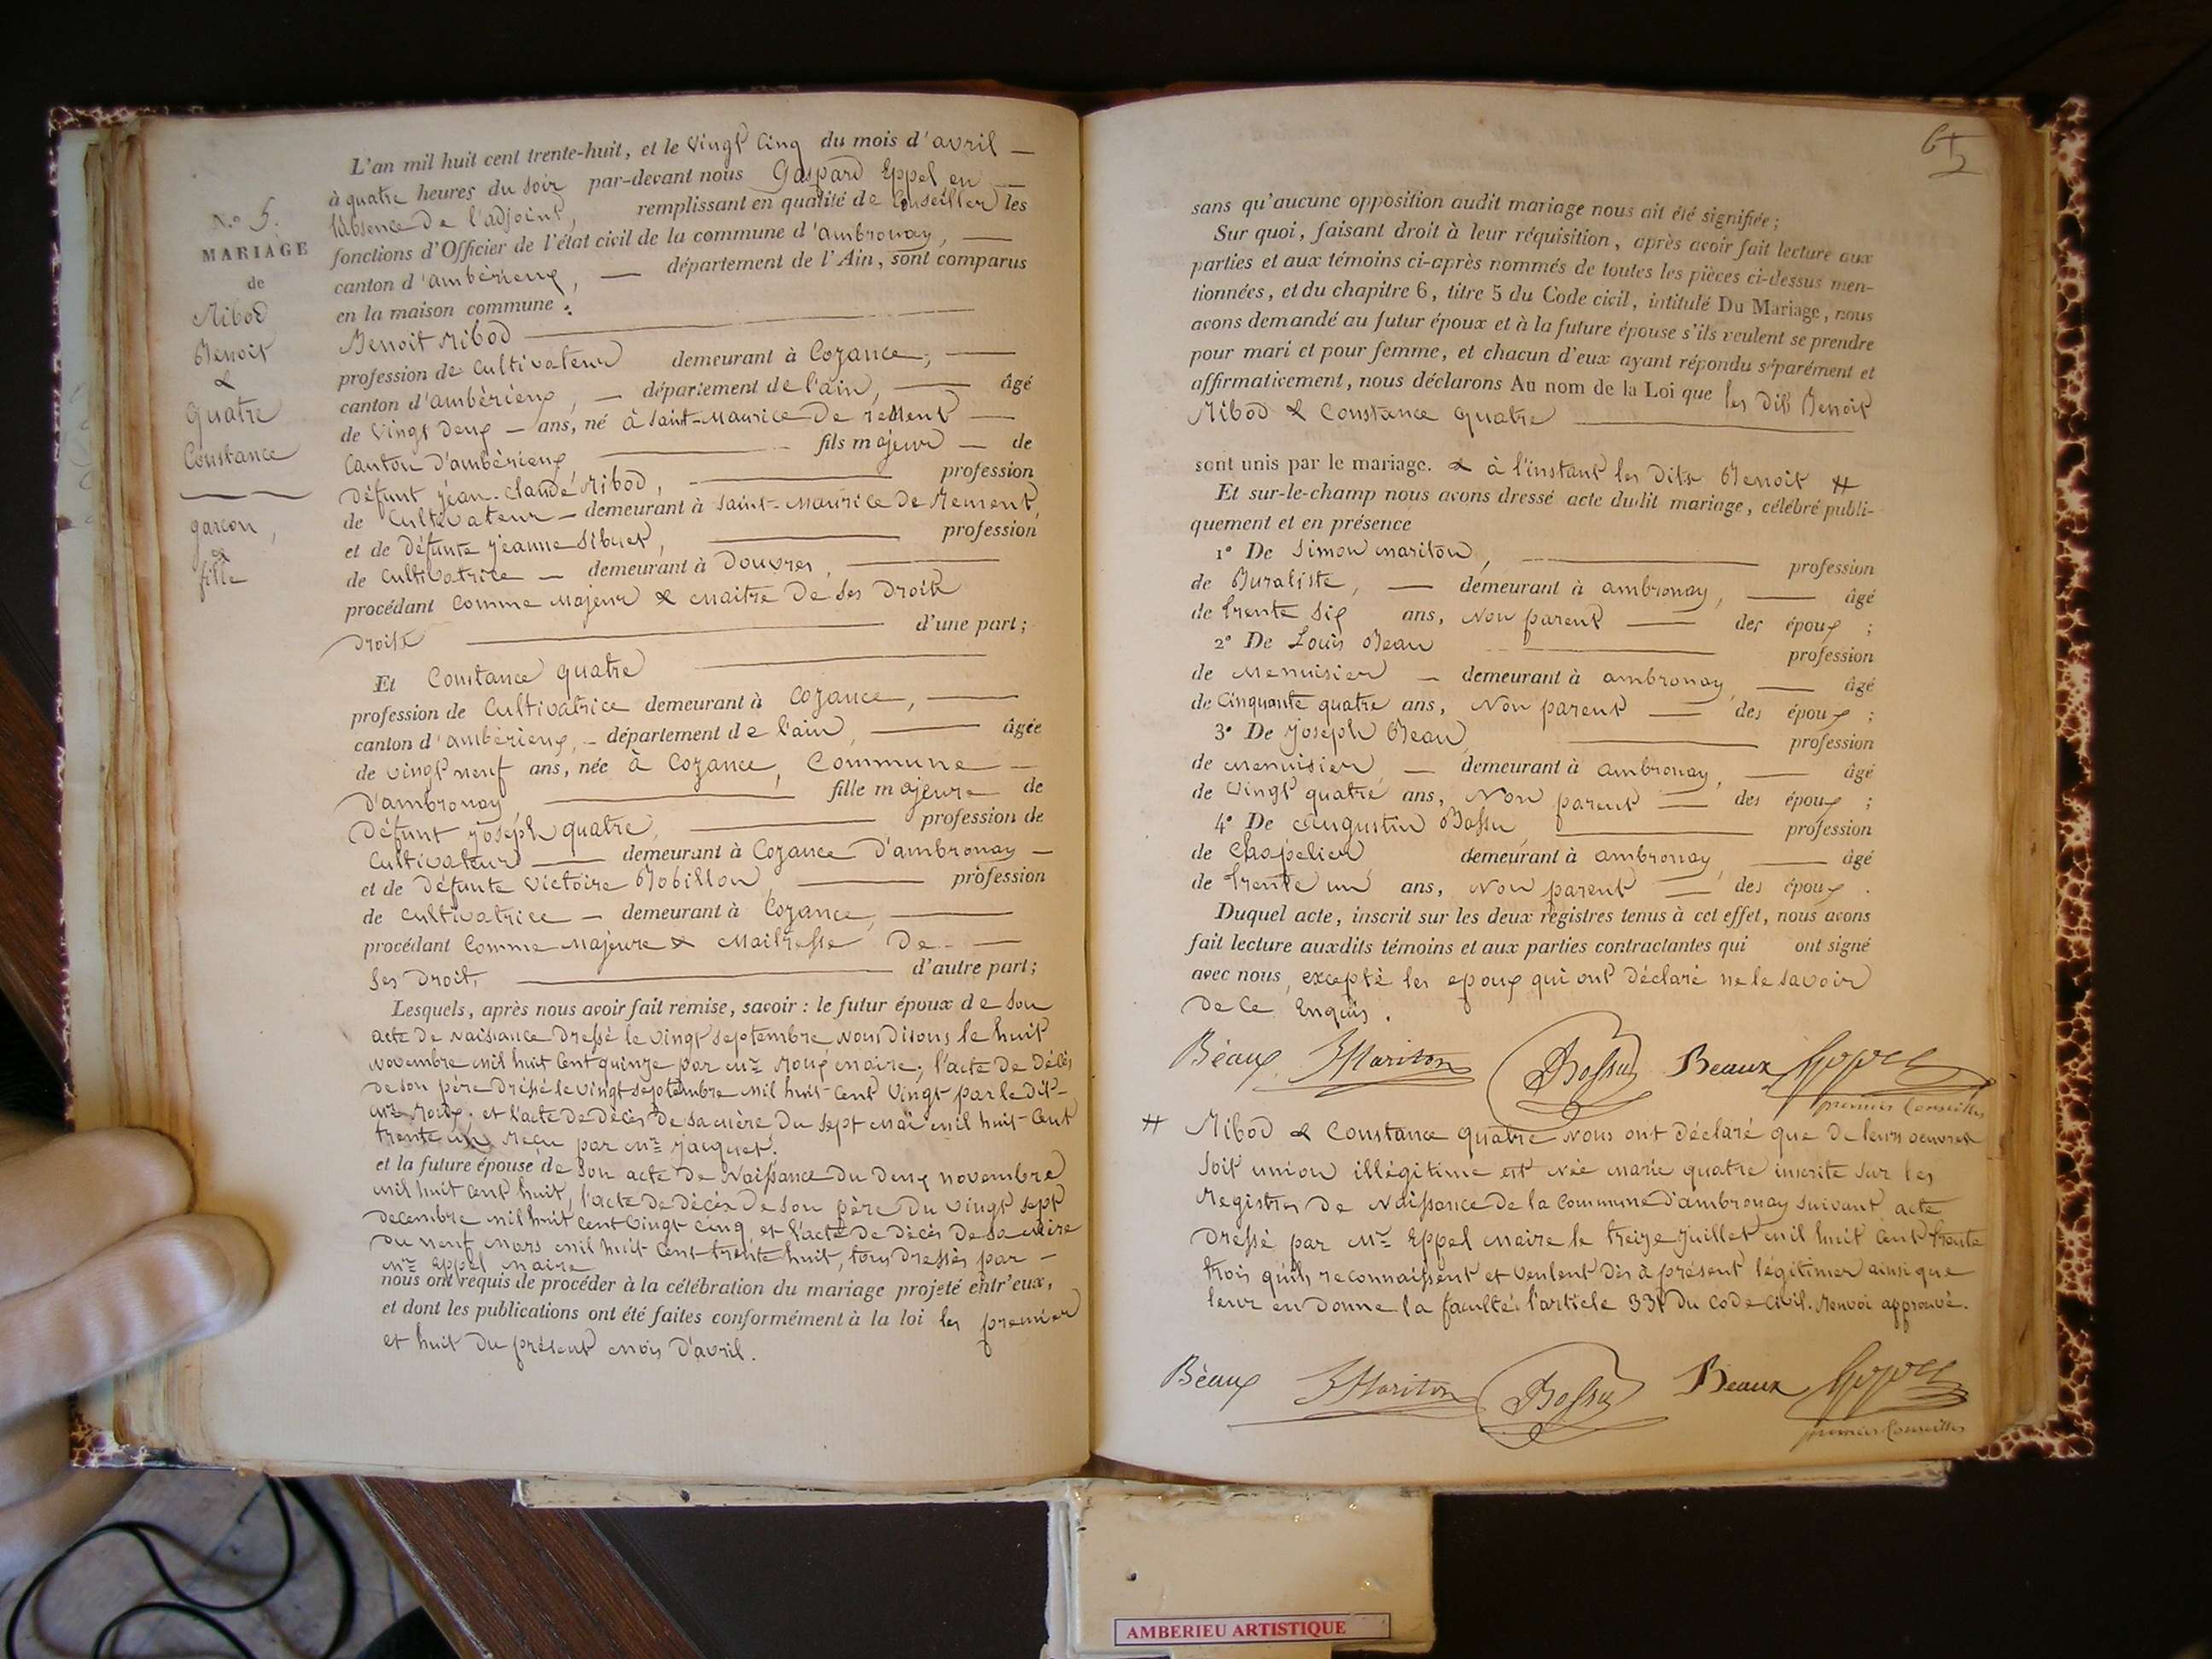 N.° 5.
MARIAGE
de
Ribod
Benoit
&
quatre
Constance
garçon,
&
fille
L'an mil huit cent trente-huit, et le vingt cinq du mois d'avril
à quatre heures du soir par-devant nous Gaspard Eppel en
l'absence de l'adjoint, remplissant en qualité de Conseiller les
fonctions d'Officier de l'état civil de la commune d'ambronay,
canton d'ambérieux, département de l'Ain, sont comparus
en la maison commune :
Benoit Ribod
profession de Cultivateur demeurant à Cozance,
canton d'ambérieux, département de l'ain, âgé
de vingt deux ans, né à Saint-Maurice de rement
Canton d'ambérieux, fils majeur de
défunt jean-Claude Ribod, profession
de Cultivateur demeurant à Saint-Maurice de Rement,
et de défunte jeanne Sibuet, profession
de Cultivatrice demeurant à Douvres,
procédant comme majeur & maitre de ses droits
droits d'une part;
Et Constance quatre
profession de Cultivatrice demeurant à Cozance,
canton d'ambérieux, département de l'ain, âgée
de vingt neuf ans, née à Cozance, Commune
d'ambronay, fille majeure de
défunt joseph quatre, profession de
Cultivateur demeurant à Cozance d'ambronay
et de défunte victoire Bobillon, profession
de Cultivatrice demeurant à Cozance,
procédant comme majeure & maitresse de
ses droits, d'autre part;
Lesquels, après nous avoir fait remise, savoir : le futur époux de son
acte de naissance dressé le vingt septembre nous disons le huit
novembre mil huit cent quinze par mr Roux maire; l'acte de décès
de son père dressé le vingt septembre mil huit cent vingt par le dit
mr Roux. et l'acte de décès de sa mère du sept mai mil huit cent
trente un reçu par mr jacquet.
et la future épouse de son acte de Naissance du deux novembre
mil huit cent huit, l'acte de décès de son père du vingt sept
decembre mil huit cent vingt cinq et l'acte de décès de sa mère
du neuf mars mil huit cent trente huit, tous dressés par
mr Eppel maire
nous ont requis de procéder à la célébration du mariage projeté entr'eux,
et dont les publications ont été faites conformément à la loi les premier
et huit du présent mois d'avril.
sans qu'aucune opposition audit mariage nous ait été signifiée;
Sur quoi, faisant droit à leur réquisition, après avoir fait lecture aux
parties et aux témoins ci-après nommés de toutes les pièces ci-dessus men-
tionnées, et du chapitre 6, titre 5 du Code civil, intitulé Du Mariage, nous
avons demandé au futur époux et à la future épouse s'ils veulent se prendre
pour mari et pour femme, et chacun d'eux ayant répondu séparément et
affirmativement, nous déclarons Au nom de la Loi que les dits Benoit
Ribod & Constance quatre
sont unis par le mariage. & à l'instant les dits Benoit #
Et sur-le-champ nous avons dressé acte dudit mariage, célébré publi-
quement et en présence
1° De Simon mariton, profession
de Buraliste, demeurant à ambronay, âgé
de trente six ans, Non parent des époux ;
2° De Louis Beau profession
de Menuisier demeurant à ambronay, âgé
de Cinquante quatre ans, Non parent des époux ;
3° De joseph Beau, profession
de menuisier demeurant à ambronay, âgé
de vingt quatre ans, Non parent des époux ;
4° De Augustin Bossu, profession
de Chapelier demeurant à ambronay, âgé
de trente un ans, Non parent des époux.
Duquel acte, inscrit sur les deux registres tenus à cet effet, nous avons
fait lecture auxdits témoins et aux parties contractantes qui ont signé
avec nous, excepté les epoux qui ont déclaré ne le savoir
de ce Enquis.
Béaux Mariton Bossu Beaux Eppel
premier Conseiller
# Ribod & Constance quatre nous ont déclaré que de leurs oeuvres
soit union illégitime est née marie quatre inscrite sur les
Registres de Naissance de la commune d'ambronay suivant acte
dressé par Mr Eppel maire le treize juillet mil huit cent trente
trois qu'ils reconnaissent et veulent dès à présent légitimer ainsi que
leur en donne la faculté l'article 331 du code civil. Renvoi approuvé.
Béaux Mariton Bossu Beaux Eppel
premier Conseiller
AMBERIEU ARTISTIQUE